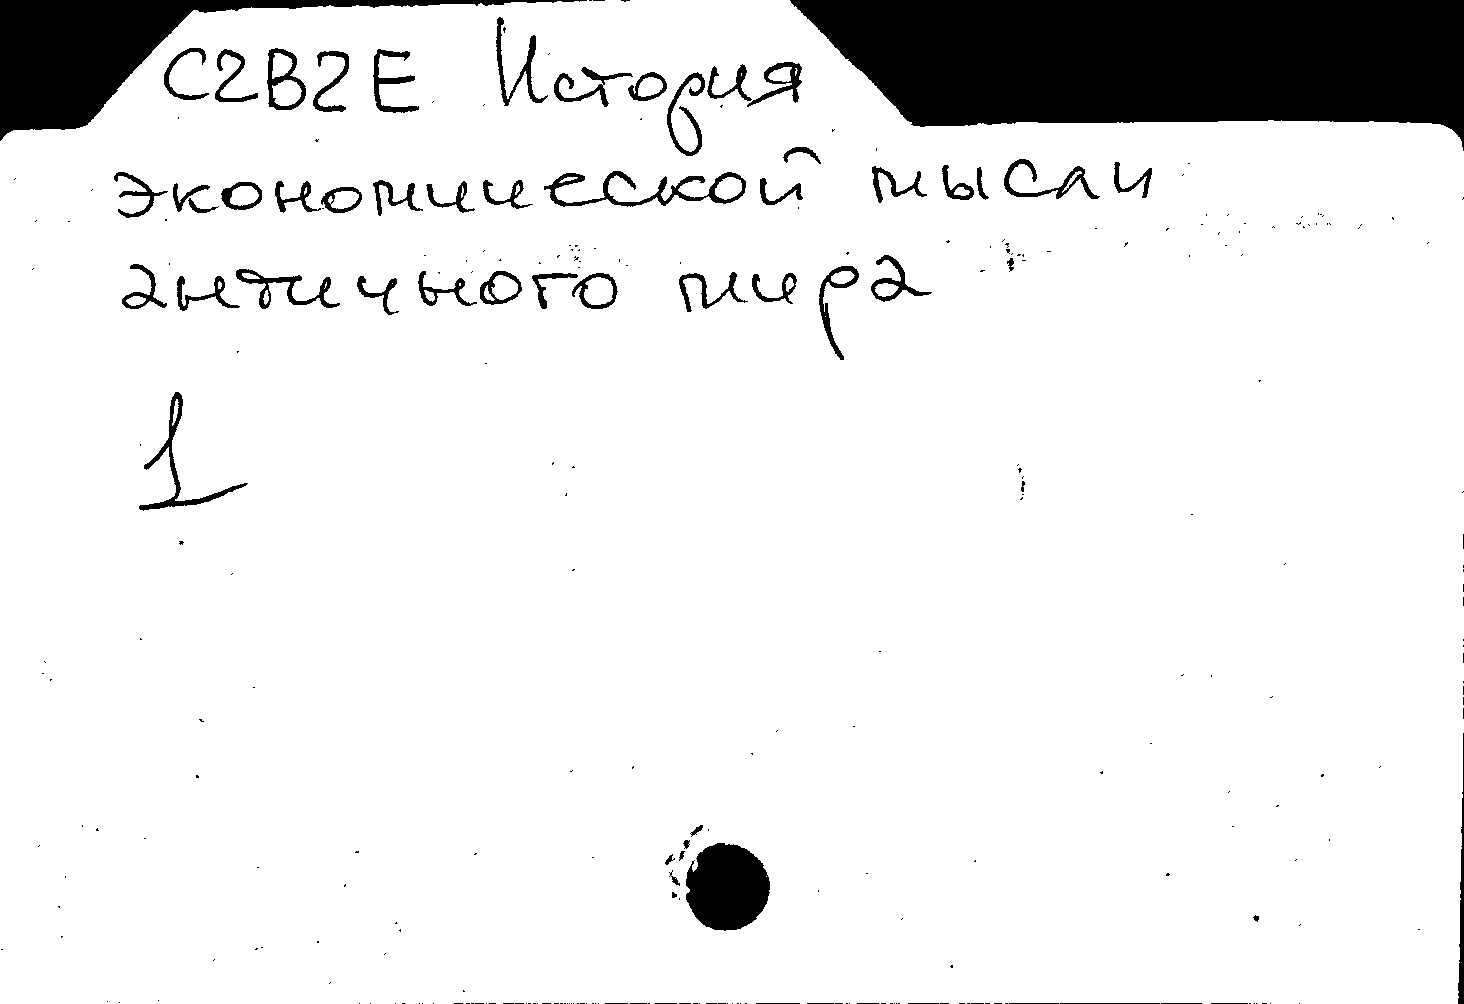 С2В2Е История
экономической мысли
античного мира
1